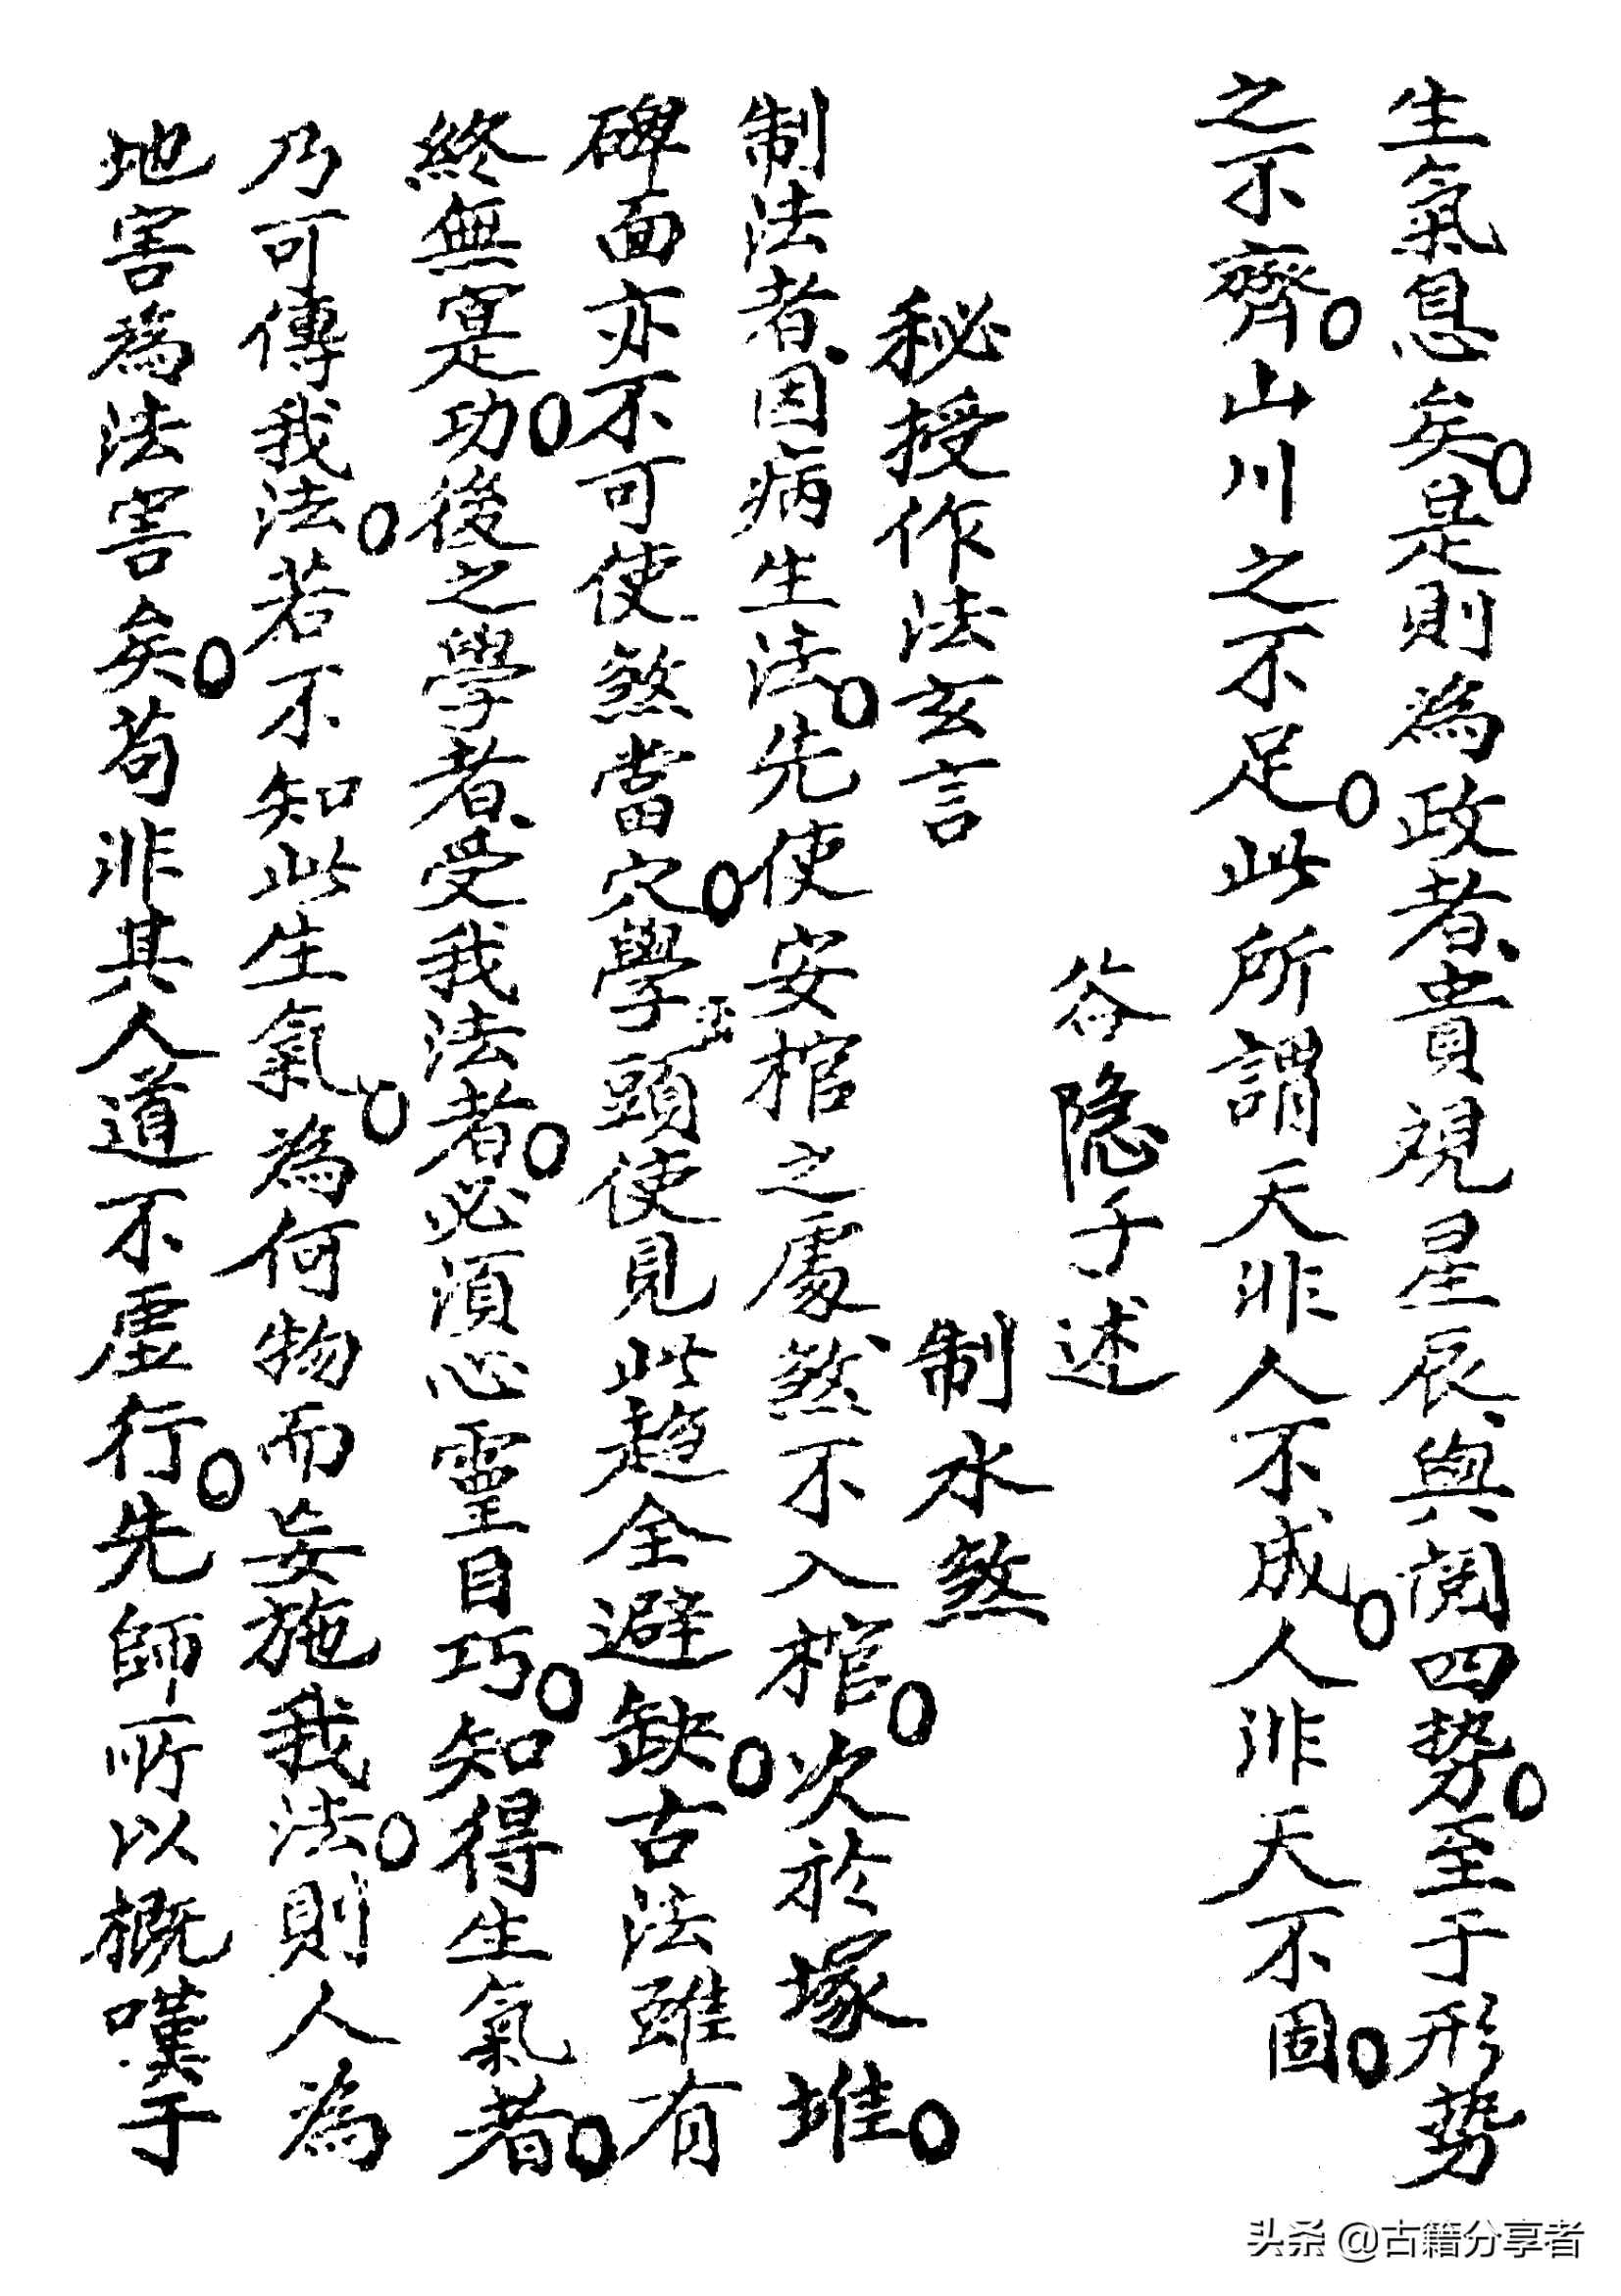 生氣息矣○是則為政者、貴視星辰、與閱四势○至于形勢
之不齊○山川之不足○此所謂天非人不成○人非天不固○
谷隐子述
秘授作法玄言 制水煞
制法者、因病生法○先使安棺之處、煞不入棺○次於塚堆○
碑面亦不可使煞當穴○學頭使見此趋全避缺○古法雖有
終無寔功○後之學者、受我法者○必須心靈目巧○知得生氣者○
乃可傳我法○若不知此生氣○為何物而妄施我法○則人為
地害為法害矣○苟非其人道不虛行○先師所以概嘆于
头条 @古籍分享者